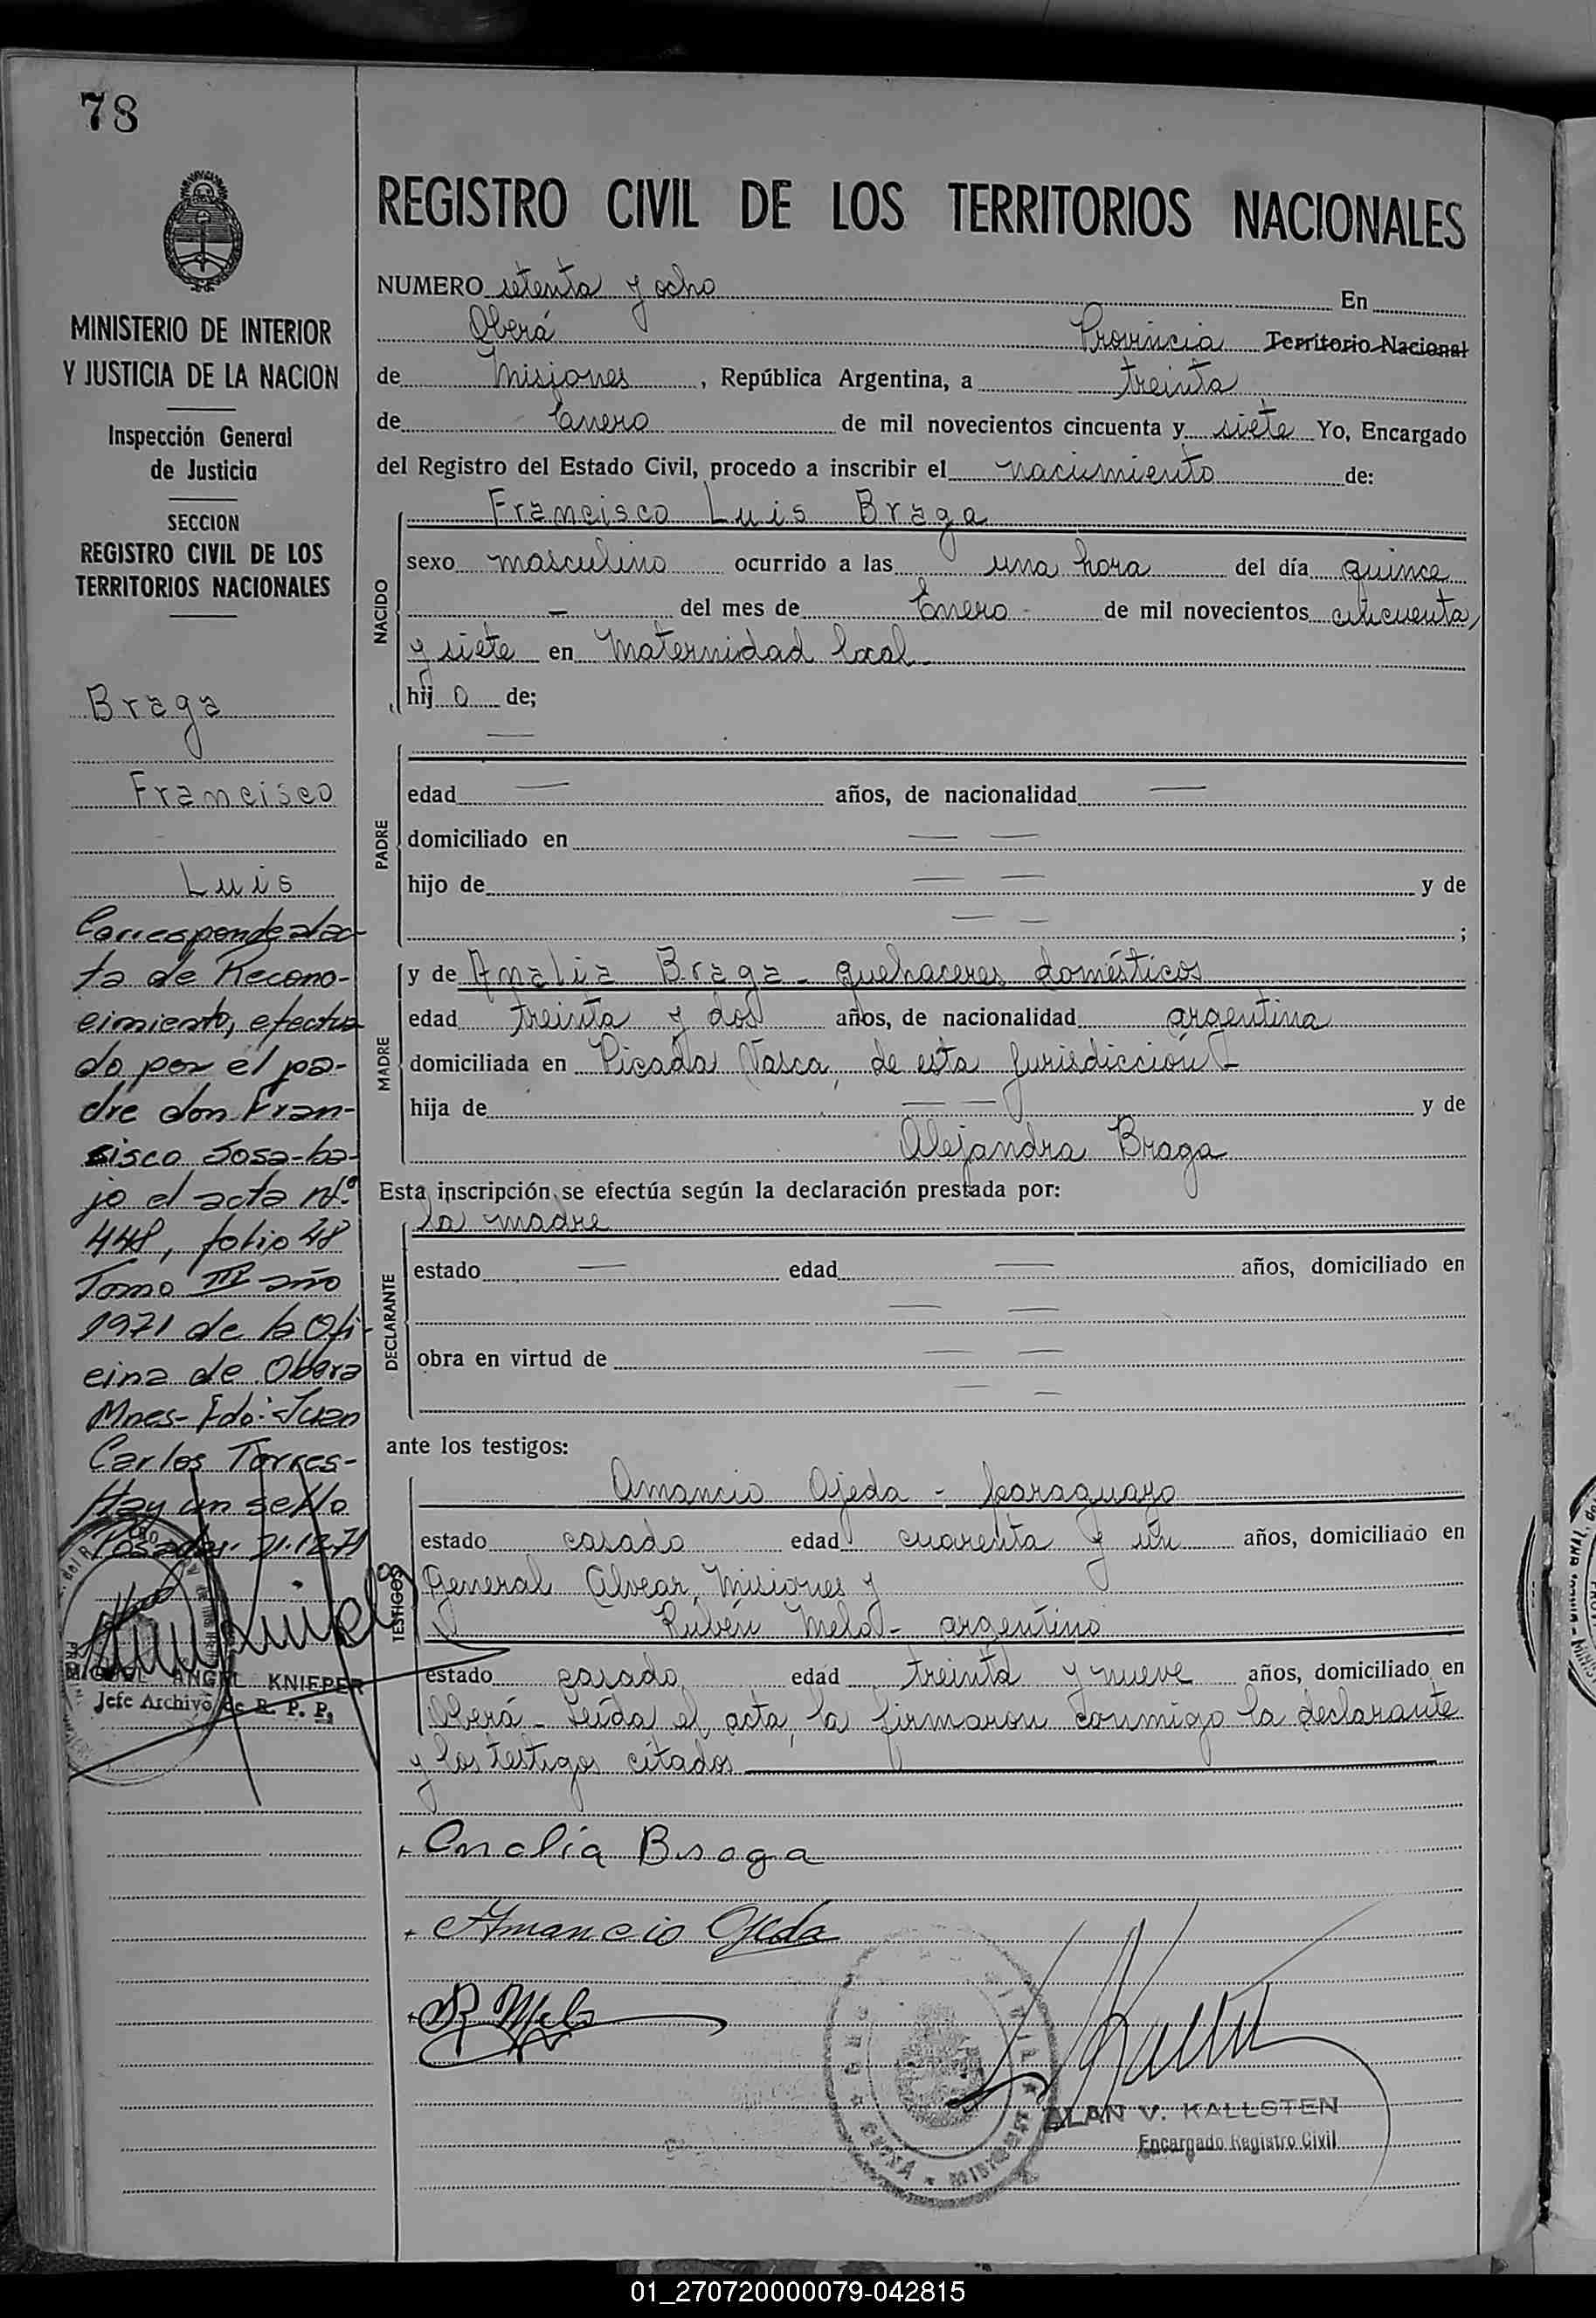 78
MINISTERIO DE INTERIOR
Y JUSTICIA DE LA NACION
Inspección General
de Justicia
SECCION
REGISTRO CIVIL DE LOS
TERRITORIOS NACIONALES
Braga
Francisco
Luis
Corresponde al ac-
ta de Recono-
cimiento, efectua
do por el pa-
dre don Fran-
cisco Sosa-ba-
jo el acta Nº
448, folio 48
Tomo III año
1971 de la Ofi-
cina de Obera
Mnes- Fdo: Juan
Carlos Torres-
Hay un sello
Posadas
MIGUEL ANGEL KNIEPER
Jefe Archivo de R. P. P.
REGISTRO CIVIL DE LOS TERRITORIOS NACIONALES
NUMERO setenta y ocho En
Oberá Provincia Territorio Nacional
de Misiones, República Argentina, a treinta
de Enero de mil novecientos cincuenta y siete Yo, Encargado
del Registro del Estado Civil, procedo a inscribir el nacimiento de:
NACIDO
Francisco Luis Braga
sexo masculino ocurrido a las una hora del día quince
— del mes de Enero - de mil novecientos cincuenta
y siete en Maternidad local
hijo de;
PADRE
—
edad — años, de nacionalidad —
domiciliado en — —
hijo de — — y de
— — ;
MADRE
y de Amalia Braga - quehaceres domésticos
edad treinta y dos años, de nacionalidad argentina
domiciliada en Picada Vasca, de esta Jurisdicción -
hija de — — y de
Alejandra Braga
Esta inscripción se efectúa según la declaración prestada por:
DECLARANTE
la madre
estado — edad — años, domiciliado en
— —
obra en virtud de — —
— —
ante los testigos:
TESTIGOS
Amancio Ojeda - paraguayo
estado casado edad cuarenta y un años, domiciliado en
General Alvear, Misiones y
Rubén Melo - argentino
estado casado edad treinta y nueve años, domiciliado en
Oberá - Leída el acta, la firmaron conmigo la declarante
y los testigos citados
Analia Braga
Amancio Ojeda
R Melo
ALAN V. KALLSTEN
Encargado Registro Civil
01_270720000079-042815